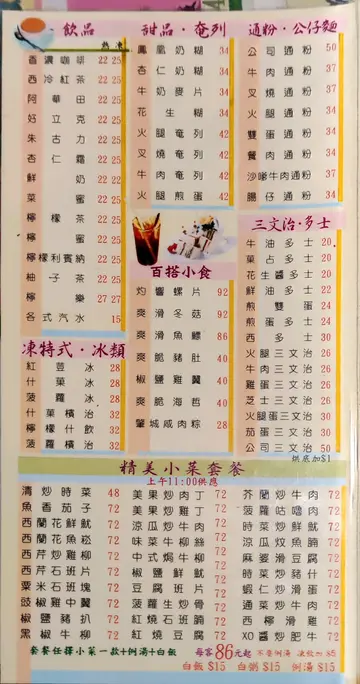 飲品
熱 凍
香濃咖啡 22 25
西冷紅茶 22 25
阿華田 22 25
好立克 22 25
朱古力 22 25
杏仁霜 22 25
鮮奶 22 22
菜蜜 22 25
檸檬茶 22 25
檸蜜 22 25
檸檬利賓納 22 25
柚子茶 22 25
檸樂 27 27
各式汽水 15
凍特式·冰類
紅荳冰 28
什菓冰 28
菠蘿冰 28
什菓檳治 32
檸檬什飲 32
菠蘿檳治 32
甜品·奄列
鳳凰奶糊 34
杏仁奶糊 34
牛奶麥片 34
花生糊 34
火腿奄列 42
叉燒奄列 42
牛肉奄列 42
火腿煎蛋 42
百搭小食
灼響螺片 92
爽滑冬菇 92
爽滑魚鰾 86
爽脆豬肚 40
椒鹽雞翼 40
爽脆海哲 40
肇城咸肉粽 28
通粉·公仔麵
公司通粉 50
牛肉通粉 37
叉燒通粉 37
火腿通粉 34
雙蛋通粉 34
餐肉通粉 34
沙嗲牛肉通粉 37
腸仔通粉 34
三文治·多士
牛油多士 20
菓占多士 20
花生醬多士 20
鮮油多士 22
煎雙蛋 24
煎蛋多士 24
西多士 30
火腿三文治 26
牛肉三文治 26
雞蛋三文治 26
芝士三文治 26
火腿蛋三文治 30
茄蛋三文治 30
公司三文治 50
烘底加$1
精美小菜套餐
上午11:00供應
清炒時菜 48
魚香茄子 72
西蘭花鮮魷 72
西蘭花魚崧 72
西芹炒雞柳 72
西芹炒班片 72
粟米石班塊 72
豉椒雞中翼 72
椒鹽豬扒 72
黑椒牛柳 72
美果炒肉丁 72
美果炒雞丁 72
涼瓜炒牛肉 72
味菜牛柳絲 72
中式焗牛柳 72
椒鹽鮮魷 72
豆腐班片 72
菠蘿生炒骨 72
紅燒石班腩 72
紅燒豆腐 72
芥蘭炒牛肉 72
菠蘿咕嚕肉 72
時菜炒鮮魷 72
涼瓜炆魚腩 72
麻婆滑豆腐 72
時菜炒豬什 72
蝦仁炒滑蛋 72
通菜炒牛肉 72
西檸滑雞 72
XO醬炒肥牛 72
套餐任擇小菜一款+例湯+白飯 每客86元起 不要例湯 凍飲加$5
白飯 $15 白粥 $15 例湯 $15